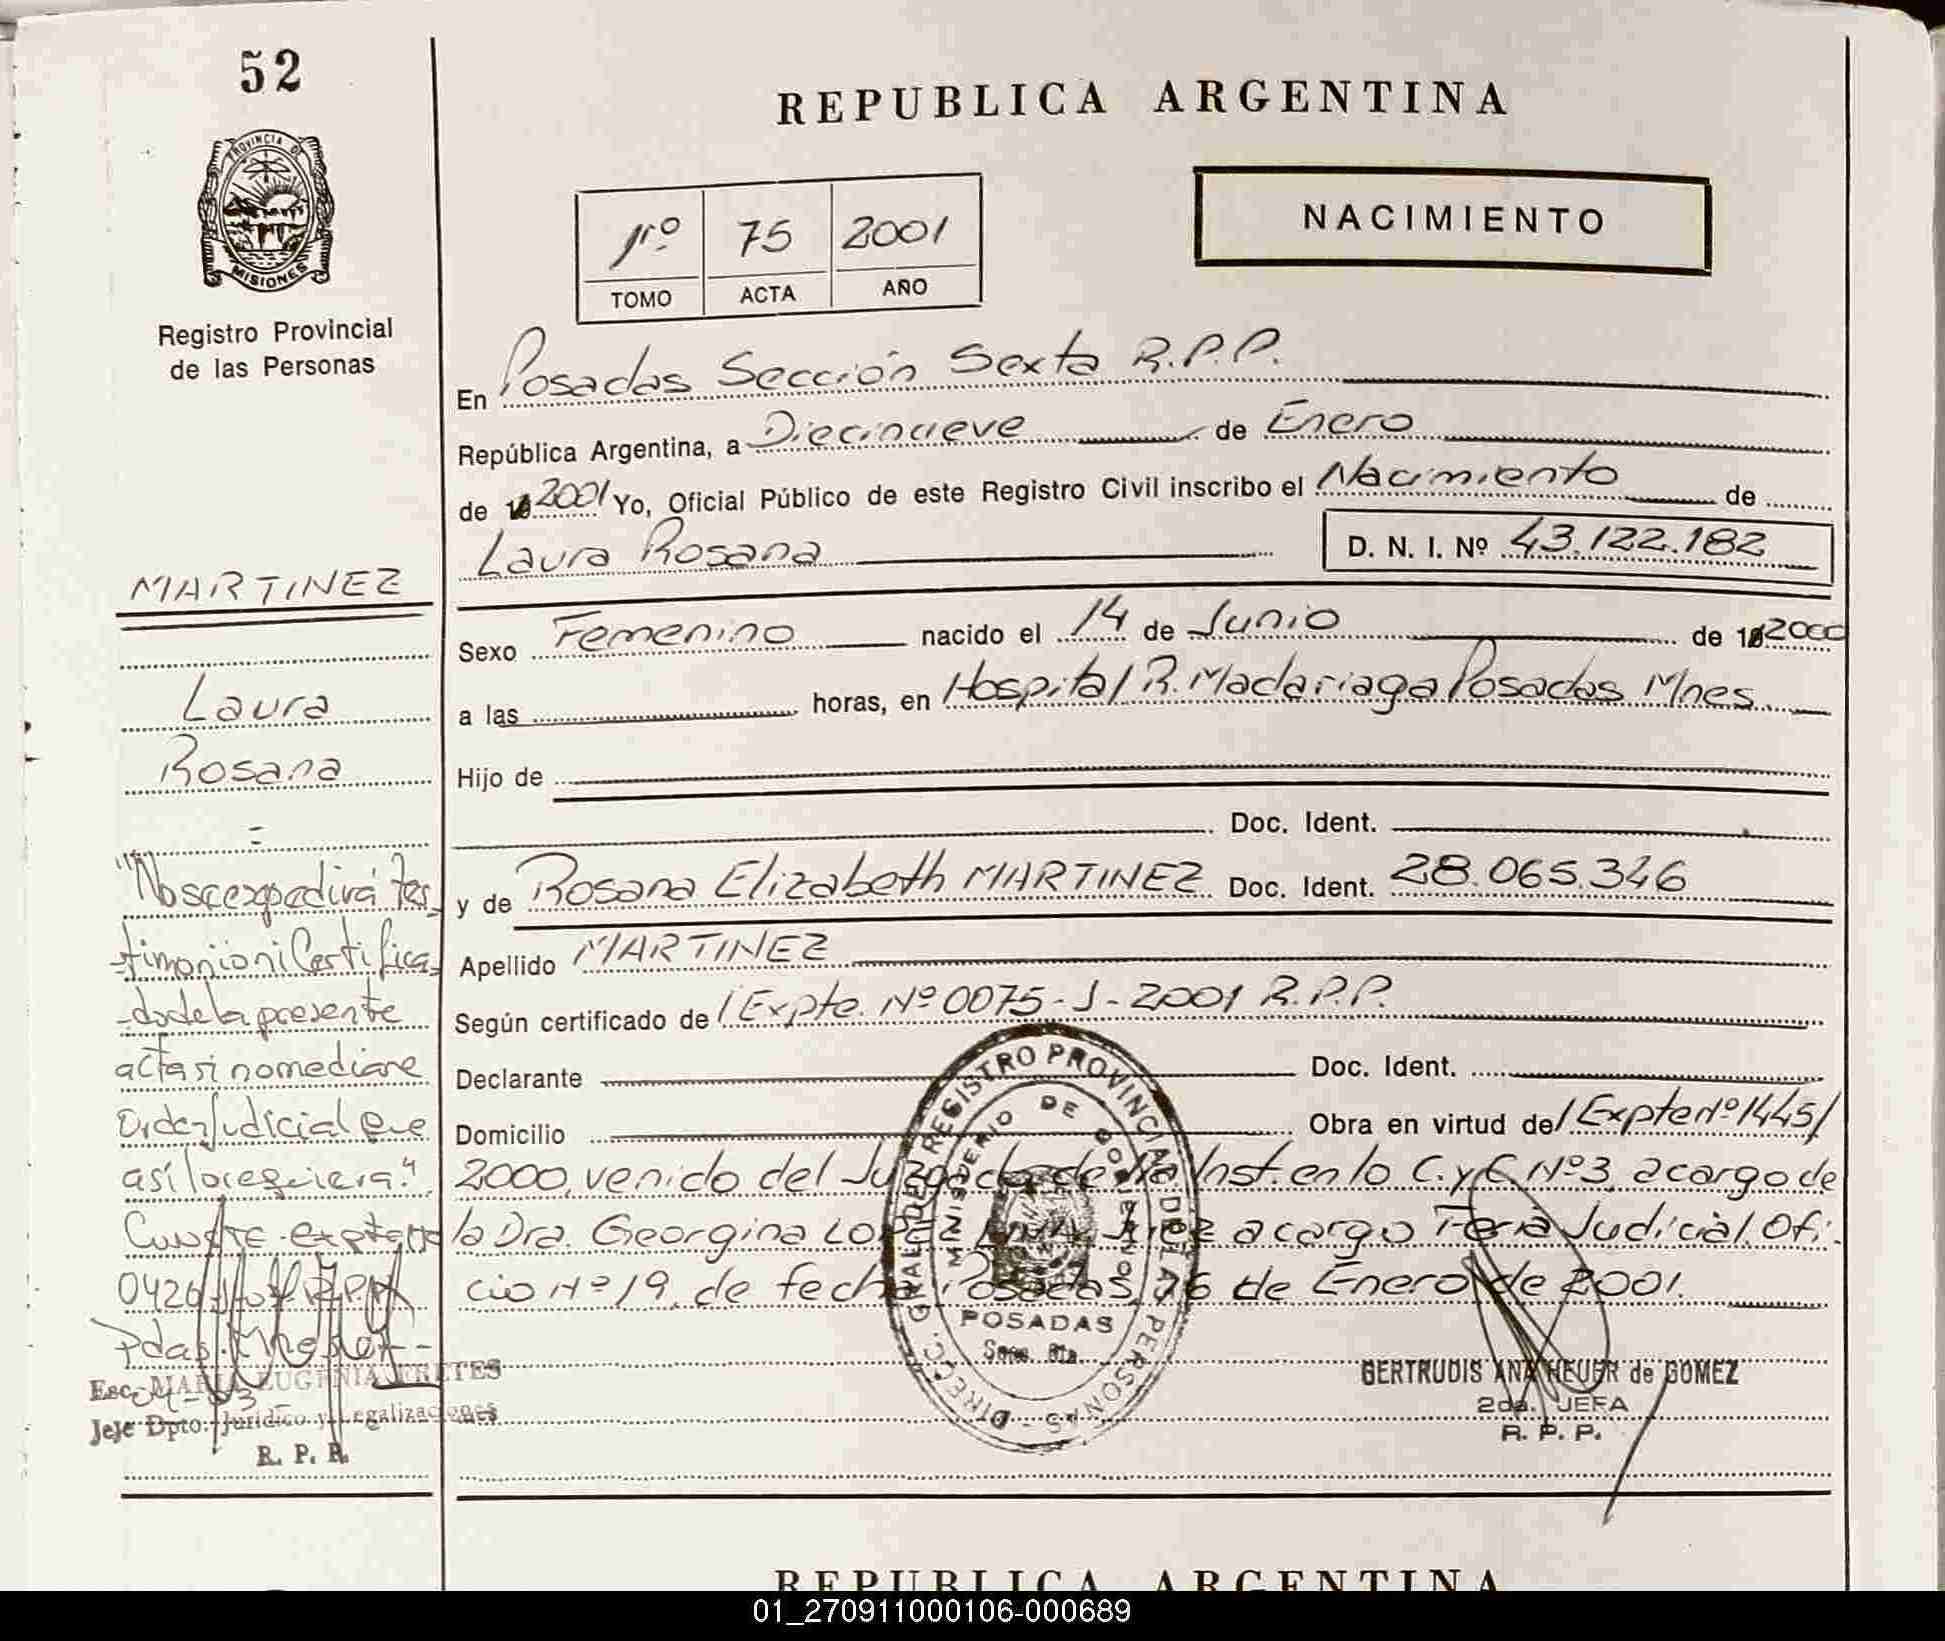 52
PROVINCIA DE
MISIONES
Registro Provincial
de las Personas
REPUBLICA ARGENTINA
NACIMIENTO
1º 75 2001
TOMO ACTA AÑO
En Posadas Sección Sexta R.P.P.
República Argentina, a Diecinueve de Enero
de 2001 Yo, Oficial Público de este Registro Civil inscribo el Nacimiento de
Laura Rosana D. N. I. Nº 43.122.182
Sexo Femenino nacido el 14 de Junio de 2000
a las horas, en Hospital R. Madariaga Posadas Mnes.
Hijo de
Doc. Ident.
y de Rosana Elizabeth MARTINEZ Doc. Ident. 28.065.346
Apellido MARTINEZ
Según certificado de / Expte. Nº 0075-J-2001 R.P.P.
Declarante Doc. Ident.
Domicilio Obra en virtud de / Expte Nº 1445/
2000, venido del Juzgado de Inst. en lo C. y C. Nº 3, a cargo de
la Dra. Georgina Juez a cargo Feria Judicial. Ofi-
cio Nº 19, de fecha Posadas, 16 de Enero de 2001.
MARTINEZ
Laura
Rosana
"No se expedirá tes
timonio ni Certifica
do de la presente
acta si no mediare
Orden Judicial que
así lo requiera".
0426
Pdas. Mnes.
Esc. MARIA EUGENIA FRETES
Jefe Dpto. Jurídico y Legalizaciones
R. P. P.
DIRECC. GRAL. DEL REGISTRO PROVINCIAL DE LAS PERSONAS
MINISTERIO DE GOBIERNO
POSADAS
Secc. 6ta.
GERTRUDIS ANA HEUER de GOMEZ
2da. JEFA
R. P. P.
REPUBLICA ARGENTINA
01_270911000106-000689